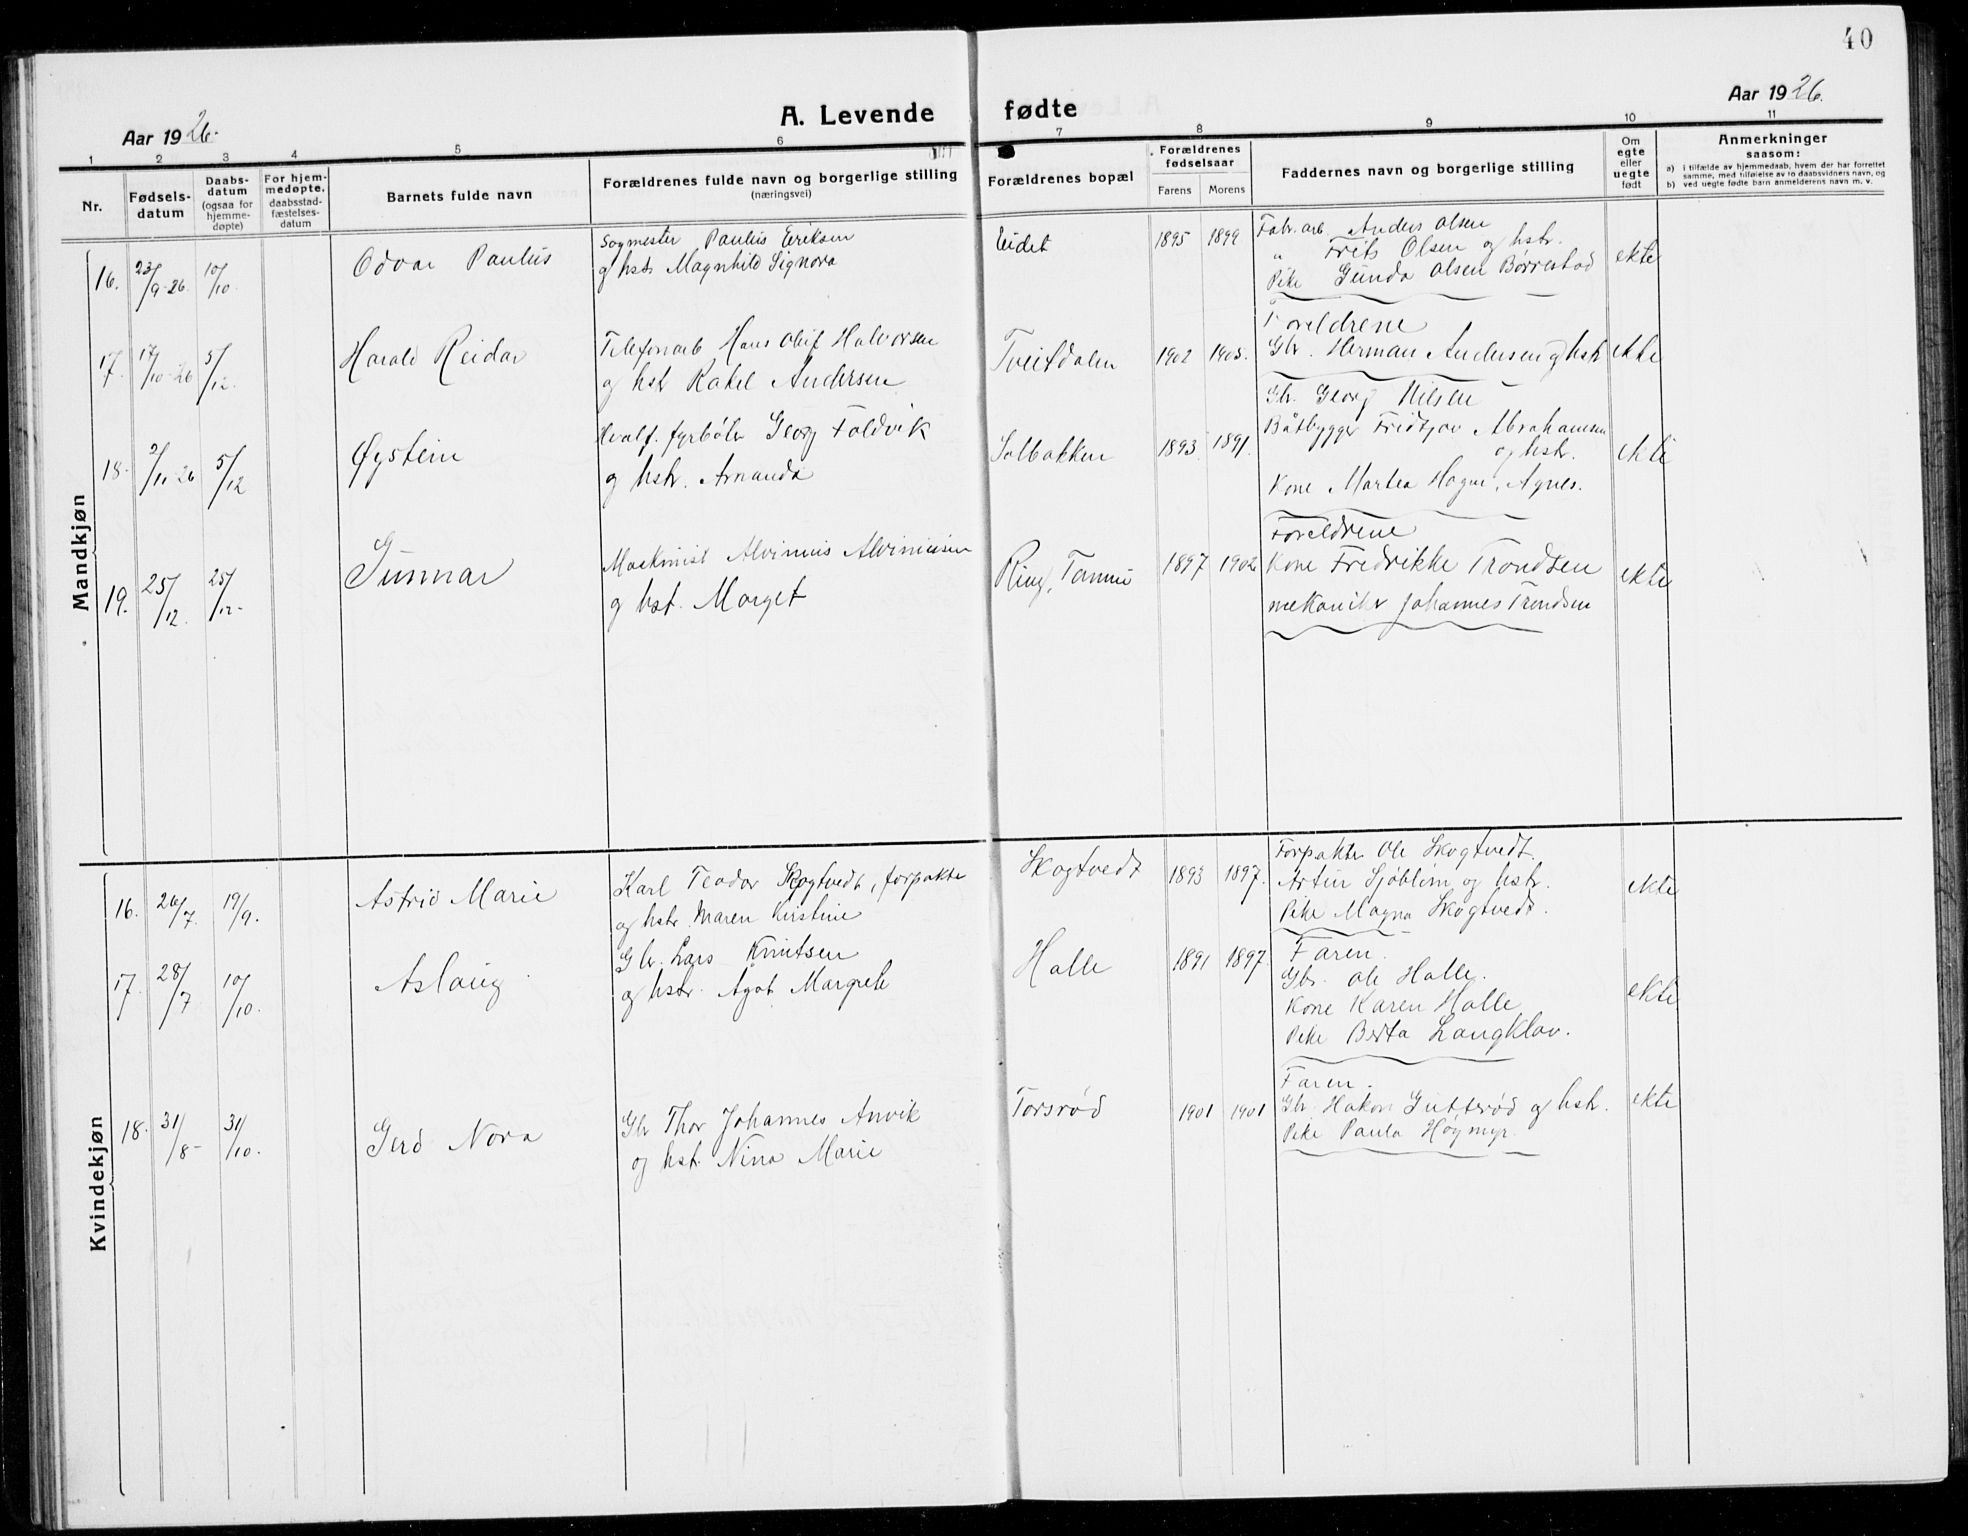 40
A. Levende fødte
Aar 1926.
Aar 1926.
1 2 3 4 5 6 7 8 9 10 11
Nr.
Fødsels-
datum
Daabs-
datum
(ogsaa for
hjemme-
døpte)
For hjem-
medøpte,
daabsstad-
fæstelses-
datum
Barnets fulde navn
Forældrenes fulde navn og borgerlige stilling
(næringsvei)
Forældrenes bopæl
Forældrenes
fødselsaar
Farens Morens
Faddernes navn og borgerlige stilling
Om
egte
eller
uegte
født
Anmerkninger
saasom:
a) i tilfælde av hjemmedaab, hvem der har forrettet
samme, med tilføielse av to daabsvidners navn, og
b) ved uegte fødte barn anmelderens navn m. v.
Mandkjøn
16. 23/9-26. 10/10. Odvar Paulus
Sogmester Paulus Eriksen
og hstr Magnhild Signora
Eidet 1895 1899
Fabr. arb. Anders Olsen
" Frits Olsen og hstr.
Pike Gunda Olsen Børrestad
ekte
17. 17/10-26 5/12. Harald Reidar
Telefonarb. Hans Oluf Halvorsen
og hstr Rakel Andersen
Tveitdalen 1902 1905.
Foreldrene
Gbr. Herman Andersen og hstr
ekte
18. 2/11-26 5/12 Øystein
Hvalf. fyrbøter Georg Foldvik
og hstr. Amanda
Solbakken 1893 1891.
Gbr. Georg Nilsen
Båtbygger Fridtjov Abrahamsen
og hstr.
Kone Martea Hagen, Agnes.
ekte
19. 25/12. 25/12- Gunnar
Maskinist Alvinius Alviniusen
og hst. Marget
Ring, 1897 1902
Foreldrene
Kone Fredrikke Trondsen
mekaniker Johannes Trondsen
ekte
Kvindekjøn
16. 26/7. 19/9. Astrid Marie
Karl Teodor Skogtvedt, forpakter
og hstr Maren Kirstine
Skogtvedt 1893 1897.
Forpakter Ole Skogtvedt.
Artur Sjöblom og hstr.
Pike Magna Skogtvedt.
ekte
17. 28/7 10/10. Aslaug
Gbr. Lars Knutsen
og hstr. Agot Margrete
Halle 1891 1897.
Faren.
Gbr. Ole Halle.
Kone Karen Halle
Pike Berta Langklov.
ekte
18. 31/8- 31/10. Gerd Nora
Gbr Thor Johannes Anvik
og hst. Nina Marie
Torsrød 1901 1901
Faren.
Gbr. Hakon Guttrød og hstr.
Pike Paula Høgmyr.
ekte